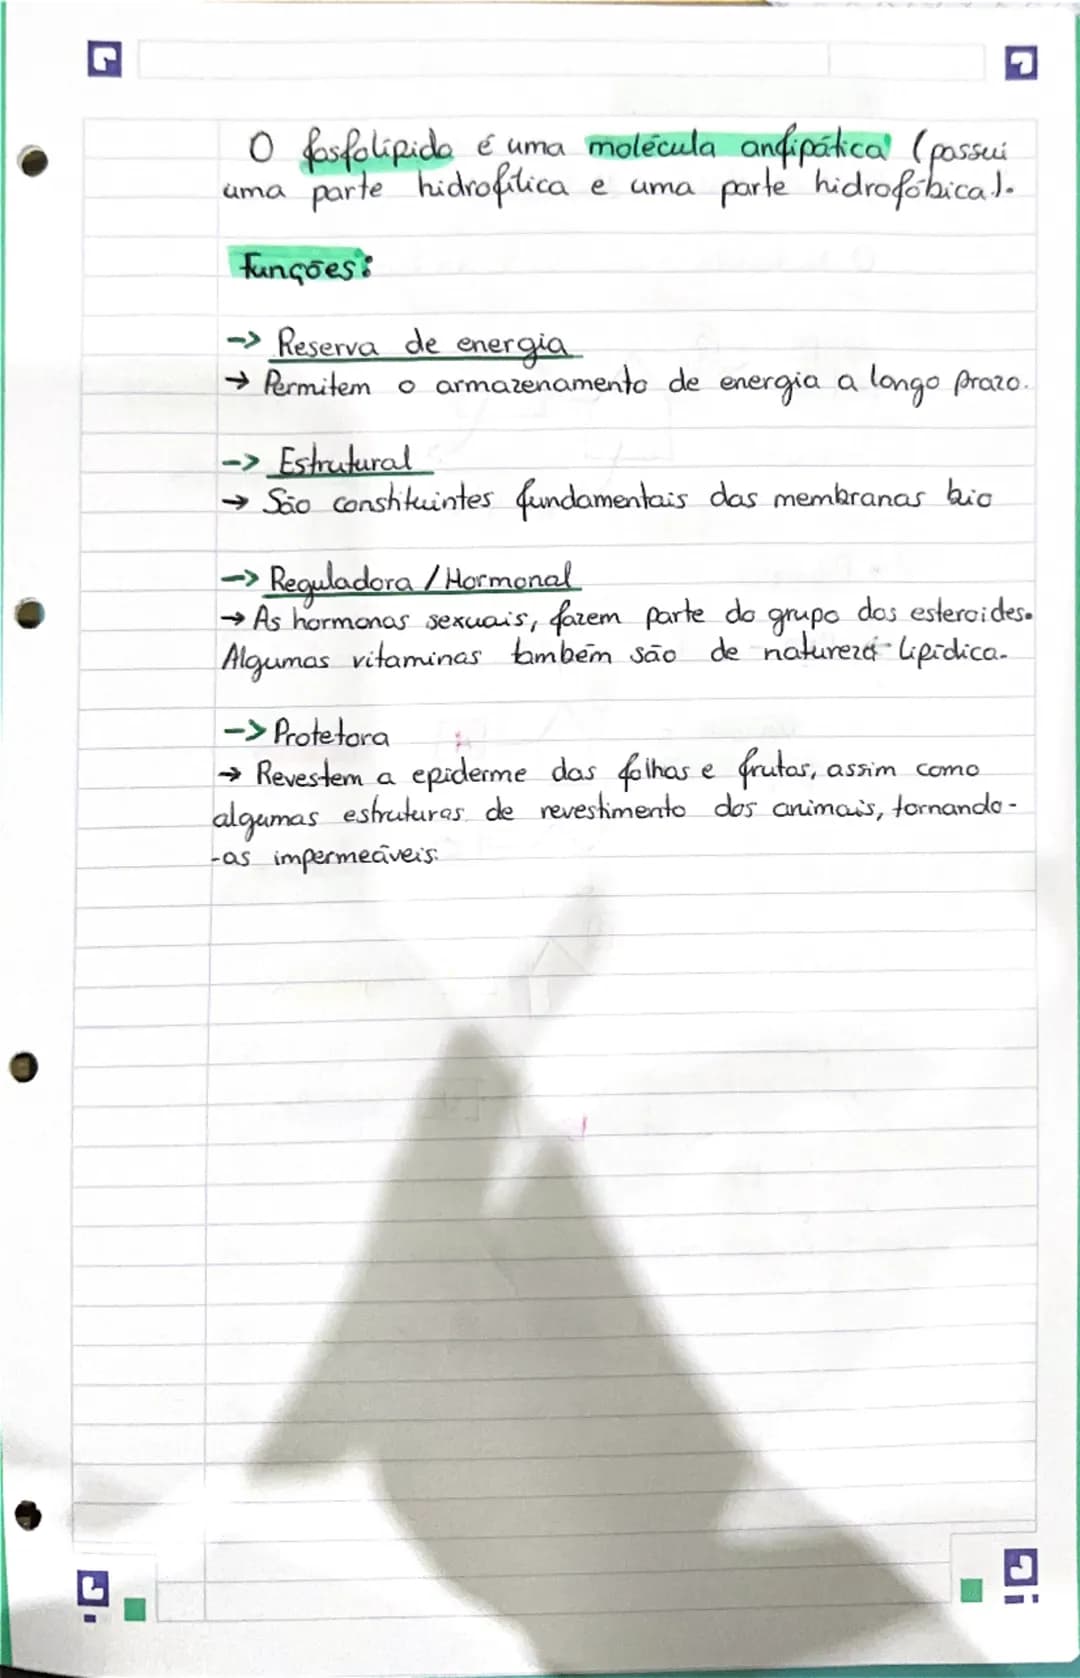 O fosfolípido é uma molécula anfipática (possui
uma parte hidrofílica e uma parte hidrofóbica).
Funções:
-> Reserva de energia
→ Permitem o armazenamento de energia a longo prazo.
-> Estrutural
→ São constituintes fundamentais das membranas bio
-> Reguladora / Hormonal
→ As hormonas sexuais, fazem parte do grupo dos esteroides.
Algumas vitaminas também são de natureza lipídica.
-> Protetora
→ Revestem a epiderme das folhas e frutos, assim como
algumas estruturas de revestimento dos animais, tornando-
-as impermeáveis.